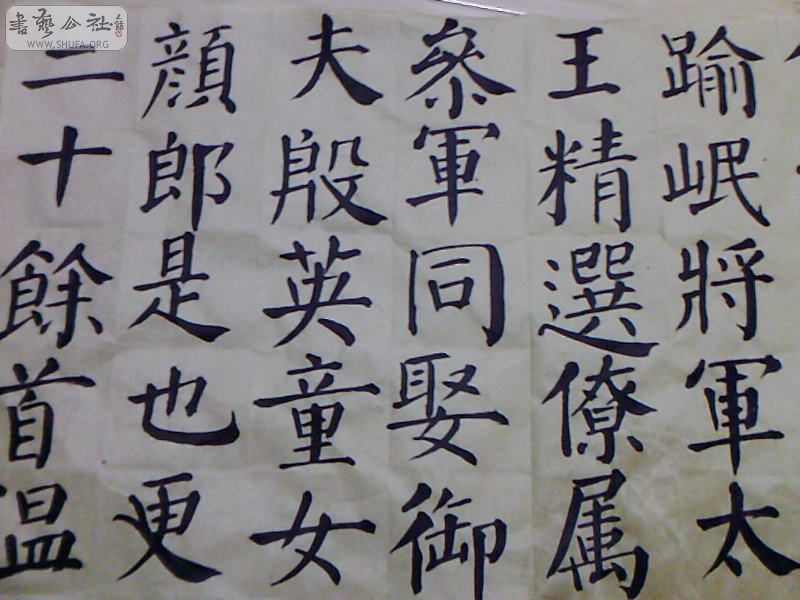 踰岷將軍太
王精選僚属
叅軍同娶御
夫殷英童女
顔郎是也更
二十餘首温
書藝公社
WWW.SHUFA.ORG